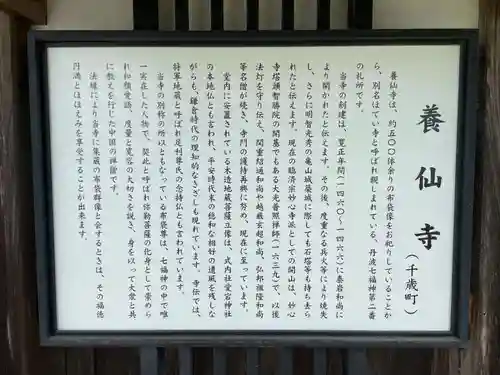 養仙寺（千歳町）
養仙寺は、約五〇〇体余りの布袋像をお祀りしていることか
ら、別名ほてい寺と呼ばれ親しまれている、丹波七福神第二番
の札所です。
当寺の創建は、寛正年間（一四六〇～一四六六）に泰岩和尚に
より開かれたと伝えます。その後、度重なる兵火等により焼失
し、さらに明智光秀の亀山城築城に際しても石塔等も持ち去ら
れたと伝えます。現在の臨済宗妙心寺派としての開山は、妙心
寺塔頭智勝院の開基でもある大光普照禅師（一六三九）で、以後
法灯を守り伝え、関重結通和尚や越巌玄超和尚、弘邦祖隆和尚
等名僧が続き、寺門の護持再興に努め、現在に至っています。
堂内に安置されている木造地蔵菩薩立像は、式内社愛宕神社
の本地仏とも言われ、平安時代末の穏和な相好の遺風を残しな
がらも、鎌倉時代の理知的なきざしも現れています。寺伝では、
将軍地蔵と呼ばれ足利尊氏の念持仏とも言われています。
当寺の別称の所以ともなっている布袋尊は、七福神の中で唯
一実在した人物で、契此と呼ばれ弥勒菩薩の化身として崇めら
れ和顔愛語、度量と寛容の大切さを説き、身を以って大衆と共
に教えを行じた中国の禅僧です。
法縁により当寺に集蔵の布袋群像と会するときは、その福徳
円満とほほえみを享受することが出来ます。